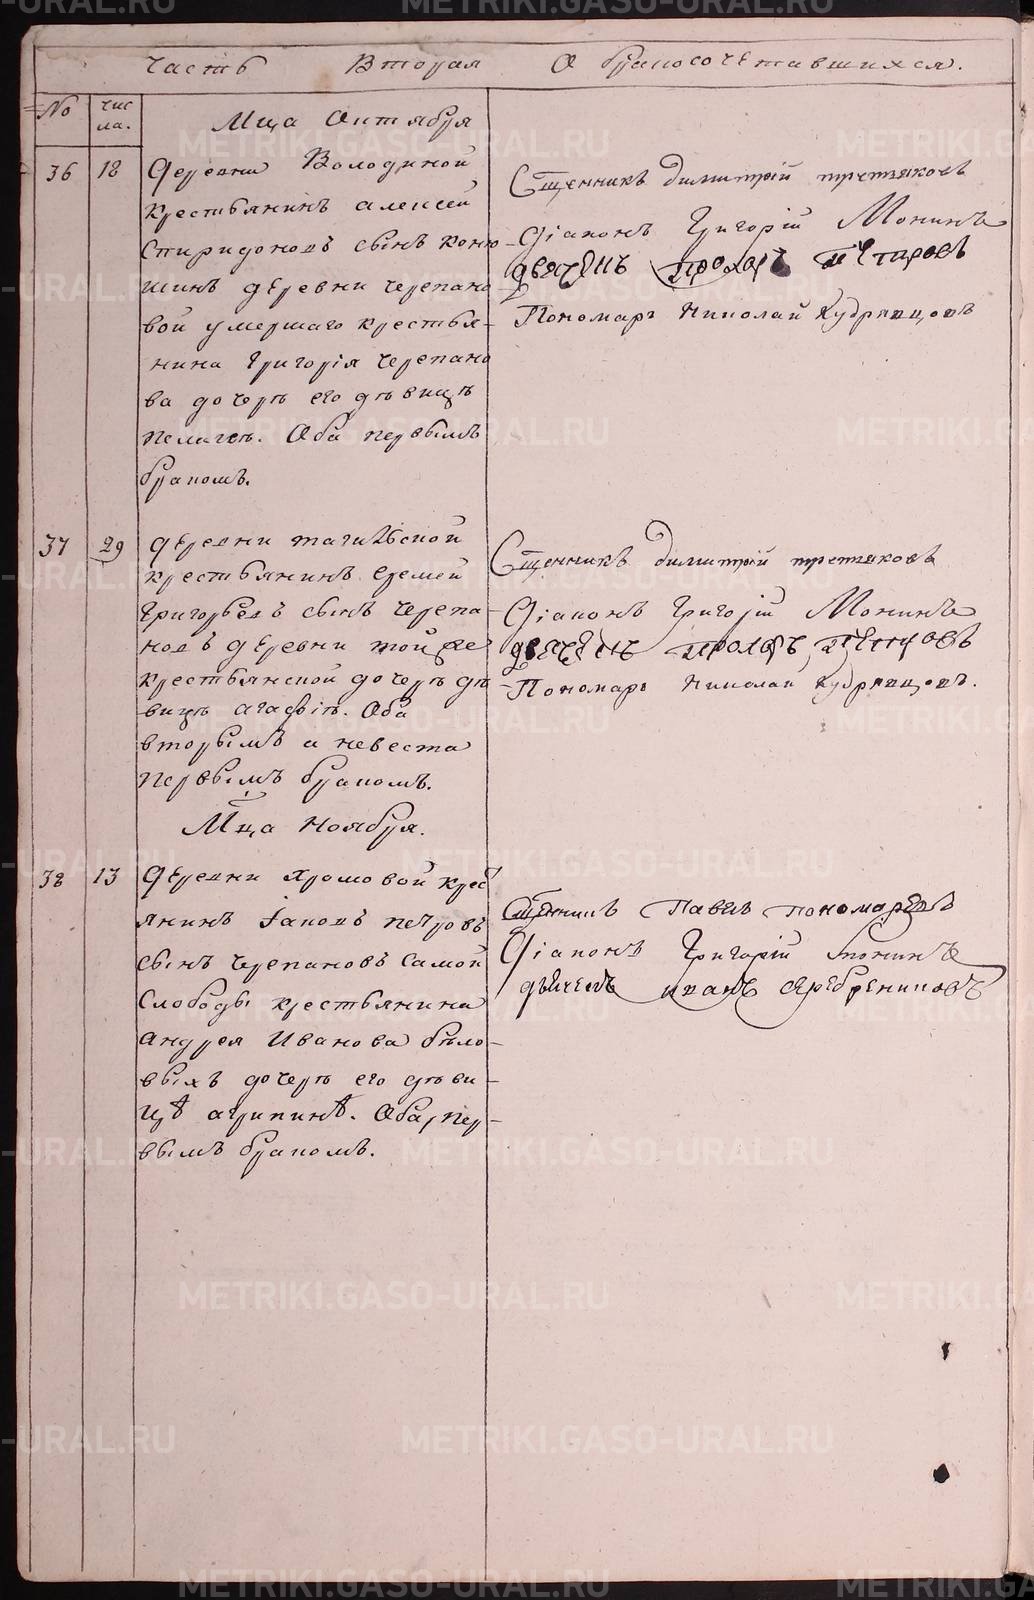 Часть Вторая О бракосочетавшихся.
№ чис
ла.
Мца Октября
36 18 Деревни Володиной
крестьянинъ алексей
Спиридоновъ сынъ коню-
шинъ деревни Черепано
вой умершаго крестья-
нина Григорія Черепано
ва дочерь его девицъ
пелагеѣ. Оба первымъ
бракомъ.
Сщенникъ димитрій третьяковъ
Діаконъ Григорій Мокинъ
дьячекъ прохоръ Петровъ
Пономарь Николай Кудрявцовъ
37 29 деревни тагильской
крестьянинъ еремей
Григорьевъ сынъ Черепа-
новъ деревни той же
крестьянской дочерь дѣ-
вицѣ агафьѣ. Оба
вторымъ а невеста
первымъ бракомъ.
Сщенникъ димитрій третьяковъ
Діаконъ Григорій Мокинъ
дьячекъ прохоръ Петровъ
Пономарь Николай Кудрявцовъ.
Мца Ноября.
38 13 Деревни Хромовой крес
янинъ Іаковъ петровъ
сынъ Черепановъ самой
Слободы крестьянина
андрея Иванова бѣло-
выхъ дочерь его дѣви-
цѣ агрипинѣ. Оба пер-
вымъ бракомъ.
Сщенникъ Павелъ пономаревъ
Діаконъ Григорій Мокинъ
дьячекъ иванъ серебрениковъ
METRIKI.GASO-URAL.RU